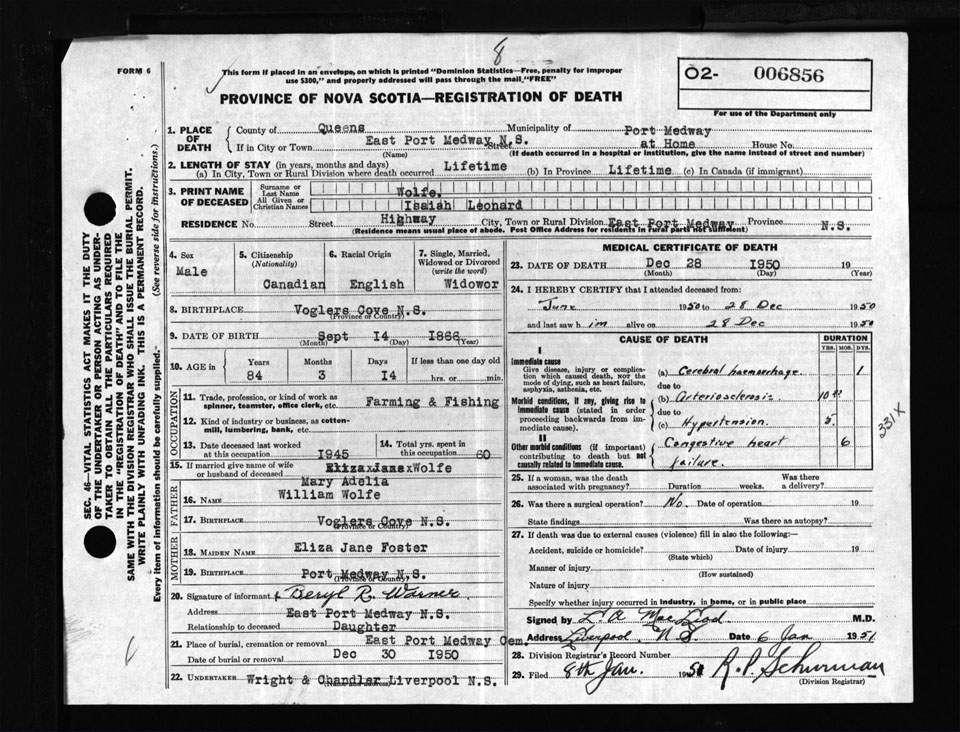 8
FORM 6
This form if placed in an envelope, on which is printed "Dominion Statistics—Free, penalty for improper
use $300," and properly addressed will pass through the mail "FREE"
O2- 006856
For use of the Department only
PROVINCE OF NOVA SCOTIA—REGISTRATION OF DEATH
SEC. 46.—VITAL STATISTICS ACT MAKES IT THE DUTY
OF THE UNDERTAKER OR PERSON ACTING AS UNDER-
TAKER TO OBTAIN ALL THE PARTICULARS REQUIRED
IN THE "REGISTRATION OF DEATH" AND TO FILE THE
SAME WITH THE DIVISION REGISTRAR WHO SHALL ISSUE THE BURIAL PERMIT.
WRITE PLAINLY WITH UNFADING INK. THIS IS A PERMANENT RECORD.
Every item of information should be carefully supplied.— (See reverse side for instructions.)
1. PLACE OF DEATH County of Queens Municipality of Port Medway
If in City or Town East Port Medway N.S. Street at Home House No.
(Name) (If death occurred in a hospital or institution, give the name instead of street and number)
2. LENGTH OF STAY (in years, months and days)
(a) In City, Town or Rural Division where death occurred Lifetime (b) In Province Lifetime (c) In Canada (if immigrant)
3. PRINT NAME OF DECEASED Surname or Last Name Wolfe.
All Given or Christian Names Isaiah Leonard
RESIDENCE No. Street Highway City, Town or Rural Division East Port Medway Province N.S.
(Residence means usual place of abode. Post Office Address for residents in rural parts not sufficient)
4. Sex Male
5. Citizenship (Nationality) Canadian
6. Racial Origin English
7. Single, Married, Widowed or Divorced (write the word) Widowor
8. BIRTHPLACE Voglers Cove N.S.
(Province or Country)
9. DATE OF BIRTH Sept 14 1866
(Month) (Day) (Year)
10. AGE in Years 84 Months 3 Days 14 If less than one day old hrs. or min.
OCCUPATION
11. Trade, profession, or kind of work as spinner, teamster, office clerk, etc. Farming & Fishing
12. Kind of industry or business, as cotton-mill, lumbering, bank, etc.
13. Date deceased last worked at this occupation 1945
14. Total yrs. spent in this occupation 60
15. If married give name of wife or husband of deceased ElizaxJanexWolfe
Mary Adelia
FATHER
16. NAME William Wolfe
17. BIRTHPLACE Voglers Cove N.S.
(Province or Country)
MOTHER
18. MAIDEN NAME Eliza Jane Foster
19. BIRTHPLACE Port Medway N.S.
(Province or Country)
20. Signature of informant x Beryl R. Warner
Address East Port Medway N.S.
Relationship to deceased Daughter
21. Place of burial, cremation or removal East Port Medway Cem.
Date of burial or removal Dec 30 1950
22. UNDERTAKER Wright & Chandler Liverpool N.S.
(Name and address)
MEDICAL CERTIFICATE OF DEATH
23. DATE OF DEATH Dec 28 1950 19
(Month) (Day) (Year)
24. I HEREBY CERTIFY that I attended deceased from:
June 1950 to 28 Dec 1950
and last saw him alive on 28 Dec 1950
CAUSE OF DEATH
DURATION
YRS. MOS. DYS.
I
Immediate cause
Give disease, injury or complication which caused death, nor the mode of dying, such as heart failure, asphyxia, asthenia, etc.
(a) Cerebral haemorrhage. 1
due to
Morbid conditions, if any, giving rise to immediate cause (stated in order proceeding backwards from immediate cause).
(b) Arteriosclerosis 10
due to
(c) Hypertension. 5
II
Other morbid conditions (if important) contributing to death but not causally related to immediate cause.
Congestive heart failure. 6
331X
25. If a woman, was the death associated with pregnancy? Duration weeks. Was there a delivery?
26. Was there a surgical operation? No. Date of operation 19
State findings Was there an autopsy?
27. If death was due to external causes (violence) fill in also the following:—
Accident, suicide or homicide? Date of injury 19
(State which)
Manner of injury
(How sustained)
Nature of injury
Specify whether injury occurred in industry, in home, or in public place
Signed by M.D.
Address Liverpool N.S. Date 6 Jan 1951
28. Division Registrar's Record Number
29. Filed 8th Jan. 1951 R.P. Schurman
(Division Registrar)